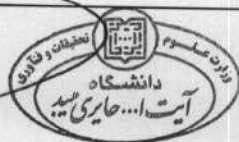 وزارت علوم تحقیقات و فناوری
دانشگاه
آیت ا... حایری میبد